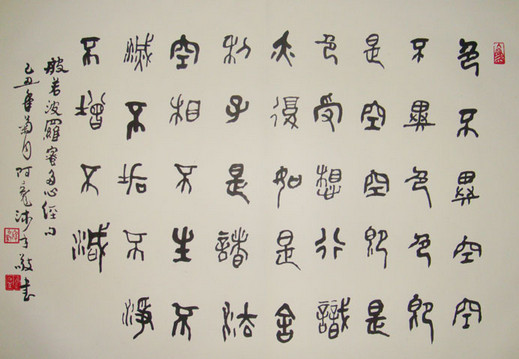 色不異空空
不異色色即
是空空即是
色受想行識
亦復如是舍
利子是諸法
空相不生不
滅不垢不淨
不增不減
般若波羅蜜多心經句
己丑年菊月阿龍沐手敬書